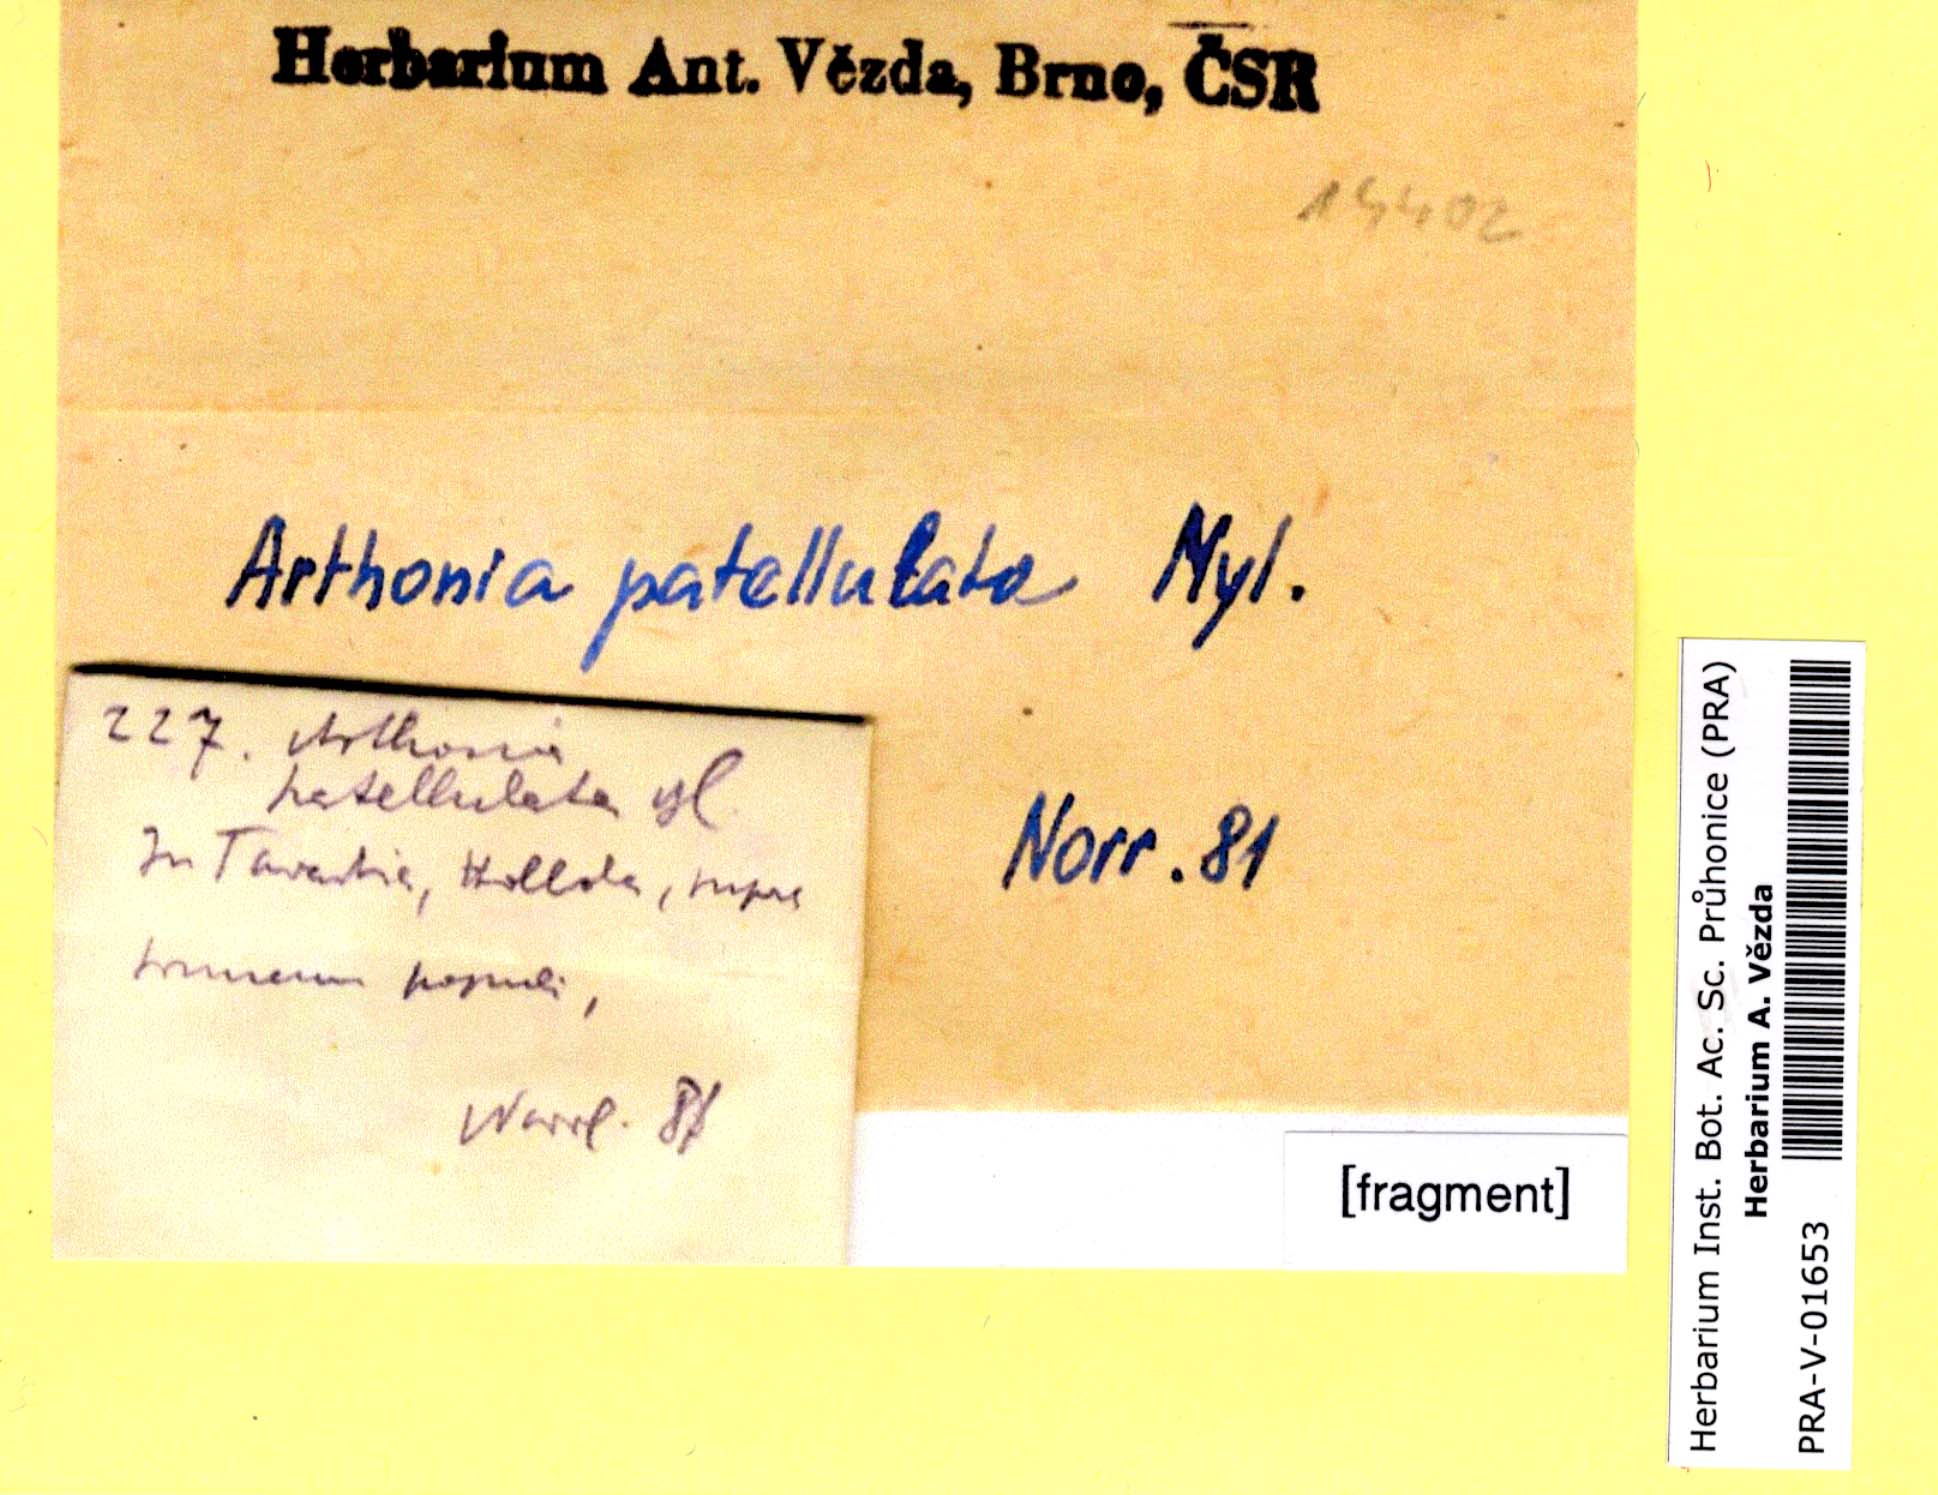 Herbarium Ant. Vězda, Brno, ČSR
14402
Arthonia patellulata Nyl.
227. Arthonia
patellulata Nyl.
In Tavastia, Hollola, supra
truncum populi,
Norrl. 81
Norr. 81
[fragment]
Herbarium Inst. Bot. Ac. Sc. Průhonice (PRA)
Herbarium A. Vězda
PRA-V-01653